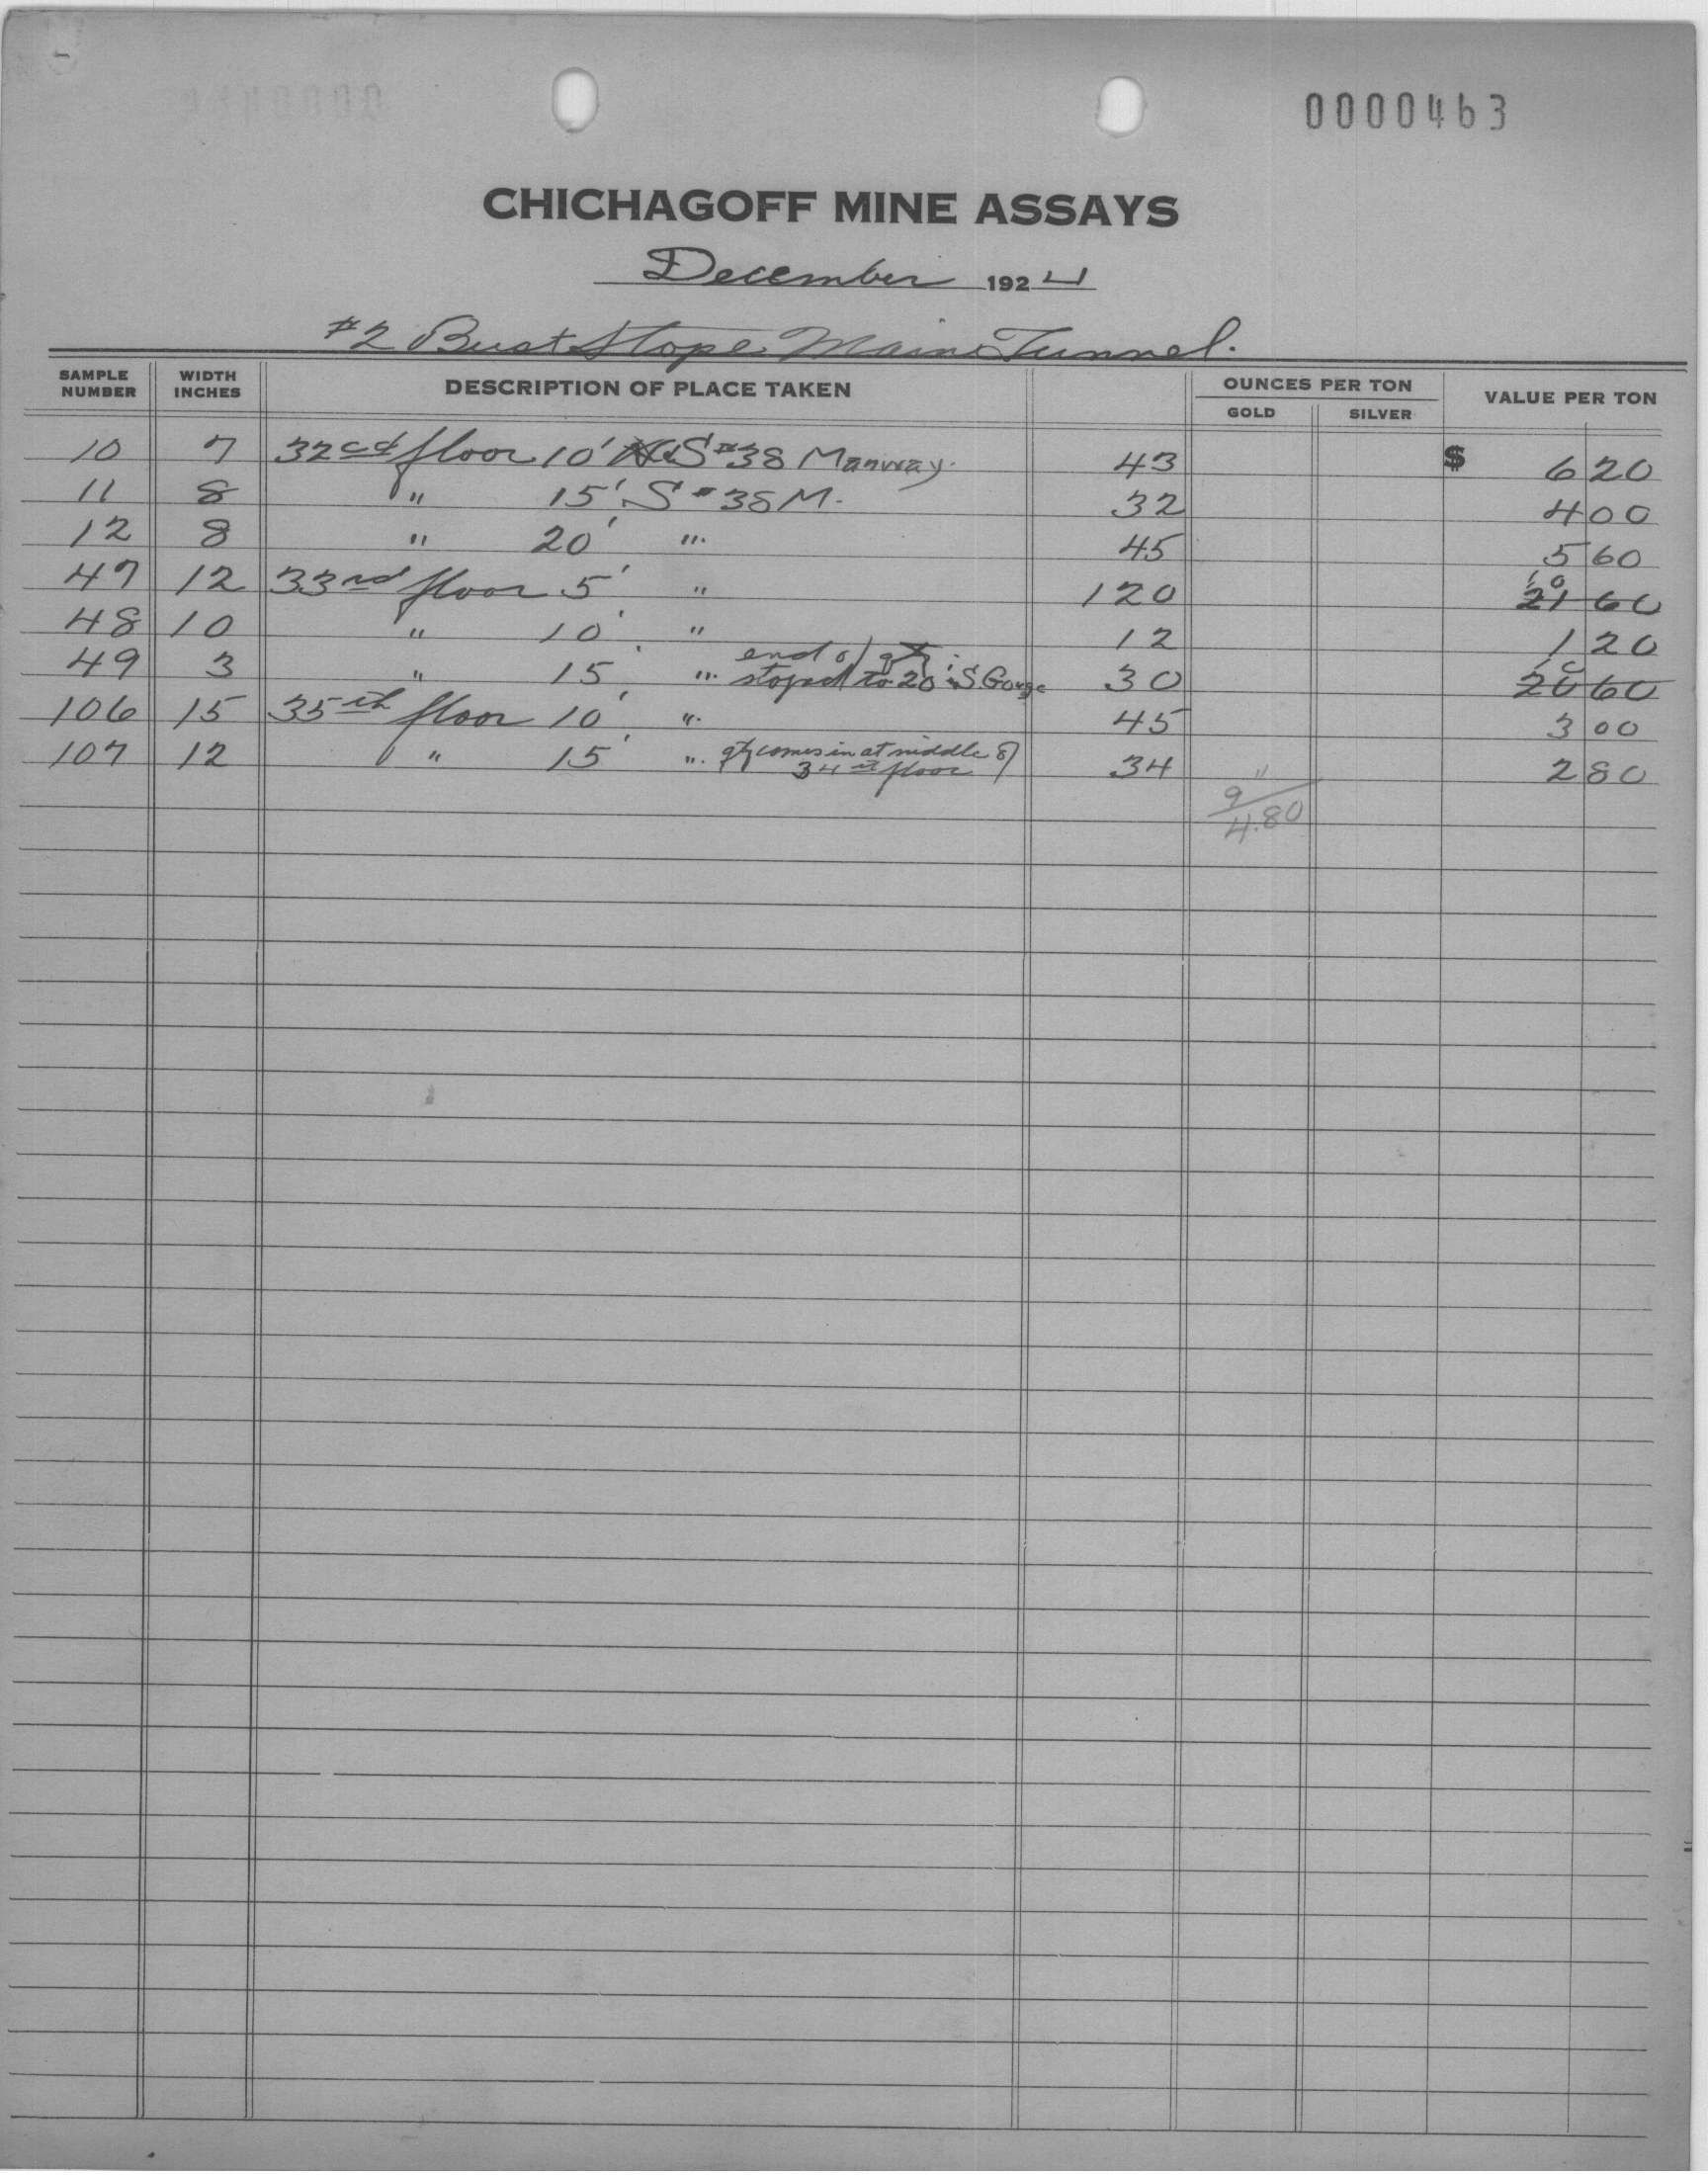 0000463
CHICHAGOFF MINE ASSAYS
December 1924
#2 Bust Stope Main Tunnel.
SAMPLE NUMBER WIDTH INCHES DESCRIPTION OF PLACE TAKEN OUNCES PER TON GOLD SILVER VALUE PER TON
10 7 32cd floor 10' S #38 Manway. 43 $ 6 20
11 8 " 15' S #38 M. 32 4 00
12 8 " 20' " 45 5 60
47 12 33rd floor 5' " 120 10 21 60
48 10 " 10' " 12 1 20
49 3 " 15' " end of qtz stoped to 20' S Gouge 30 10 20 60
106 15 35th floor 10' " 45 3 00
107 12 " 15' " qtz comes in at middle of 34th floor 34 " 2 80
9
4.80